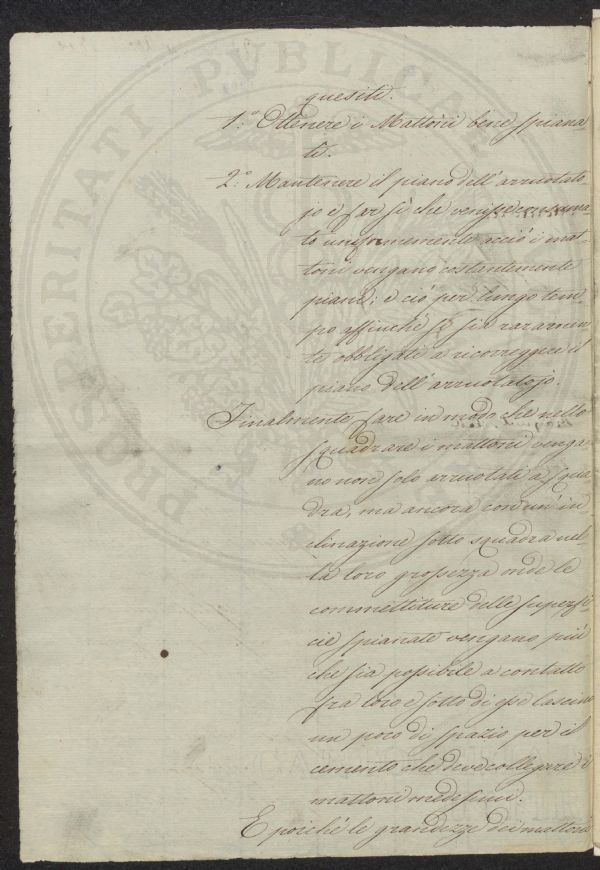 quesiti.
1.° Ottenere i Mattoni bene spiana-
ti.
2.° Mantenere il piano dell'arruotato-
jo e far sì che venisse consuma-
to uniformemente acciò i mat-
toni vengano costantemente
piani; e ciò per lungo tem
po affinchè si sia raramen-
te obbligati a ricorreggere il
piano dell'arruotatojo.
Finalmente fare in modo che nello
squadrare i mattoni venga-
no non solo arruotati a squa-
dra, ma ancora con un'in-
clinazione sotto squadra nel-
la loro grossezza onde le
commettiture delle superfi
cie spianate vengano più
che sia possibile a contatto
fra loro e sotto di esse lascino
un poco di spazio per il
cemento che deve collegare i
mattoni medesimi.
E poichè le grandezze dei mattoni
PROSPERITATI PUBLICAE